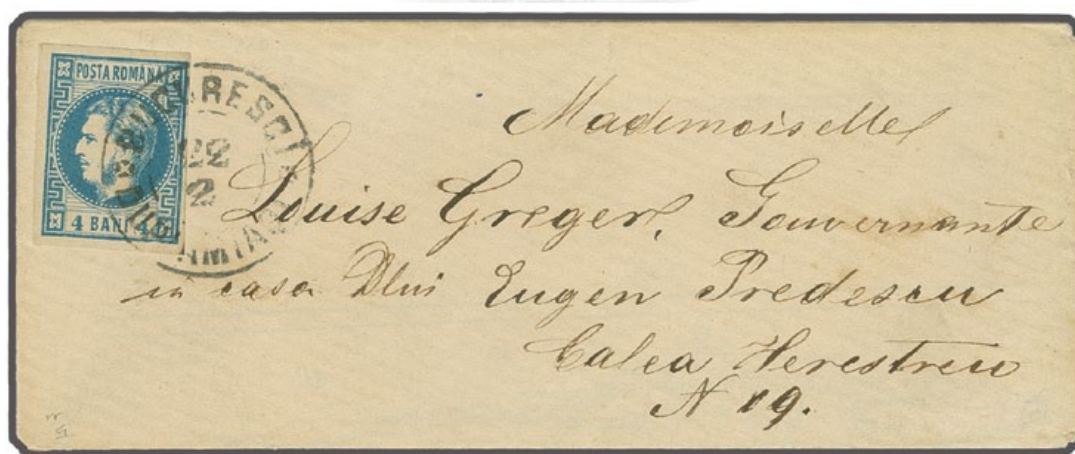 POSTA ROMANA
4 BANI 4
BUCURESCI
22
2
Mademoiselle
Louise Gregerl, Gouvernante
in casa Dlui Eugen Predescu
Calea Herestreu
N 19.